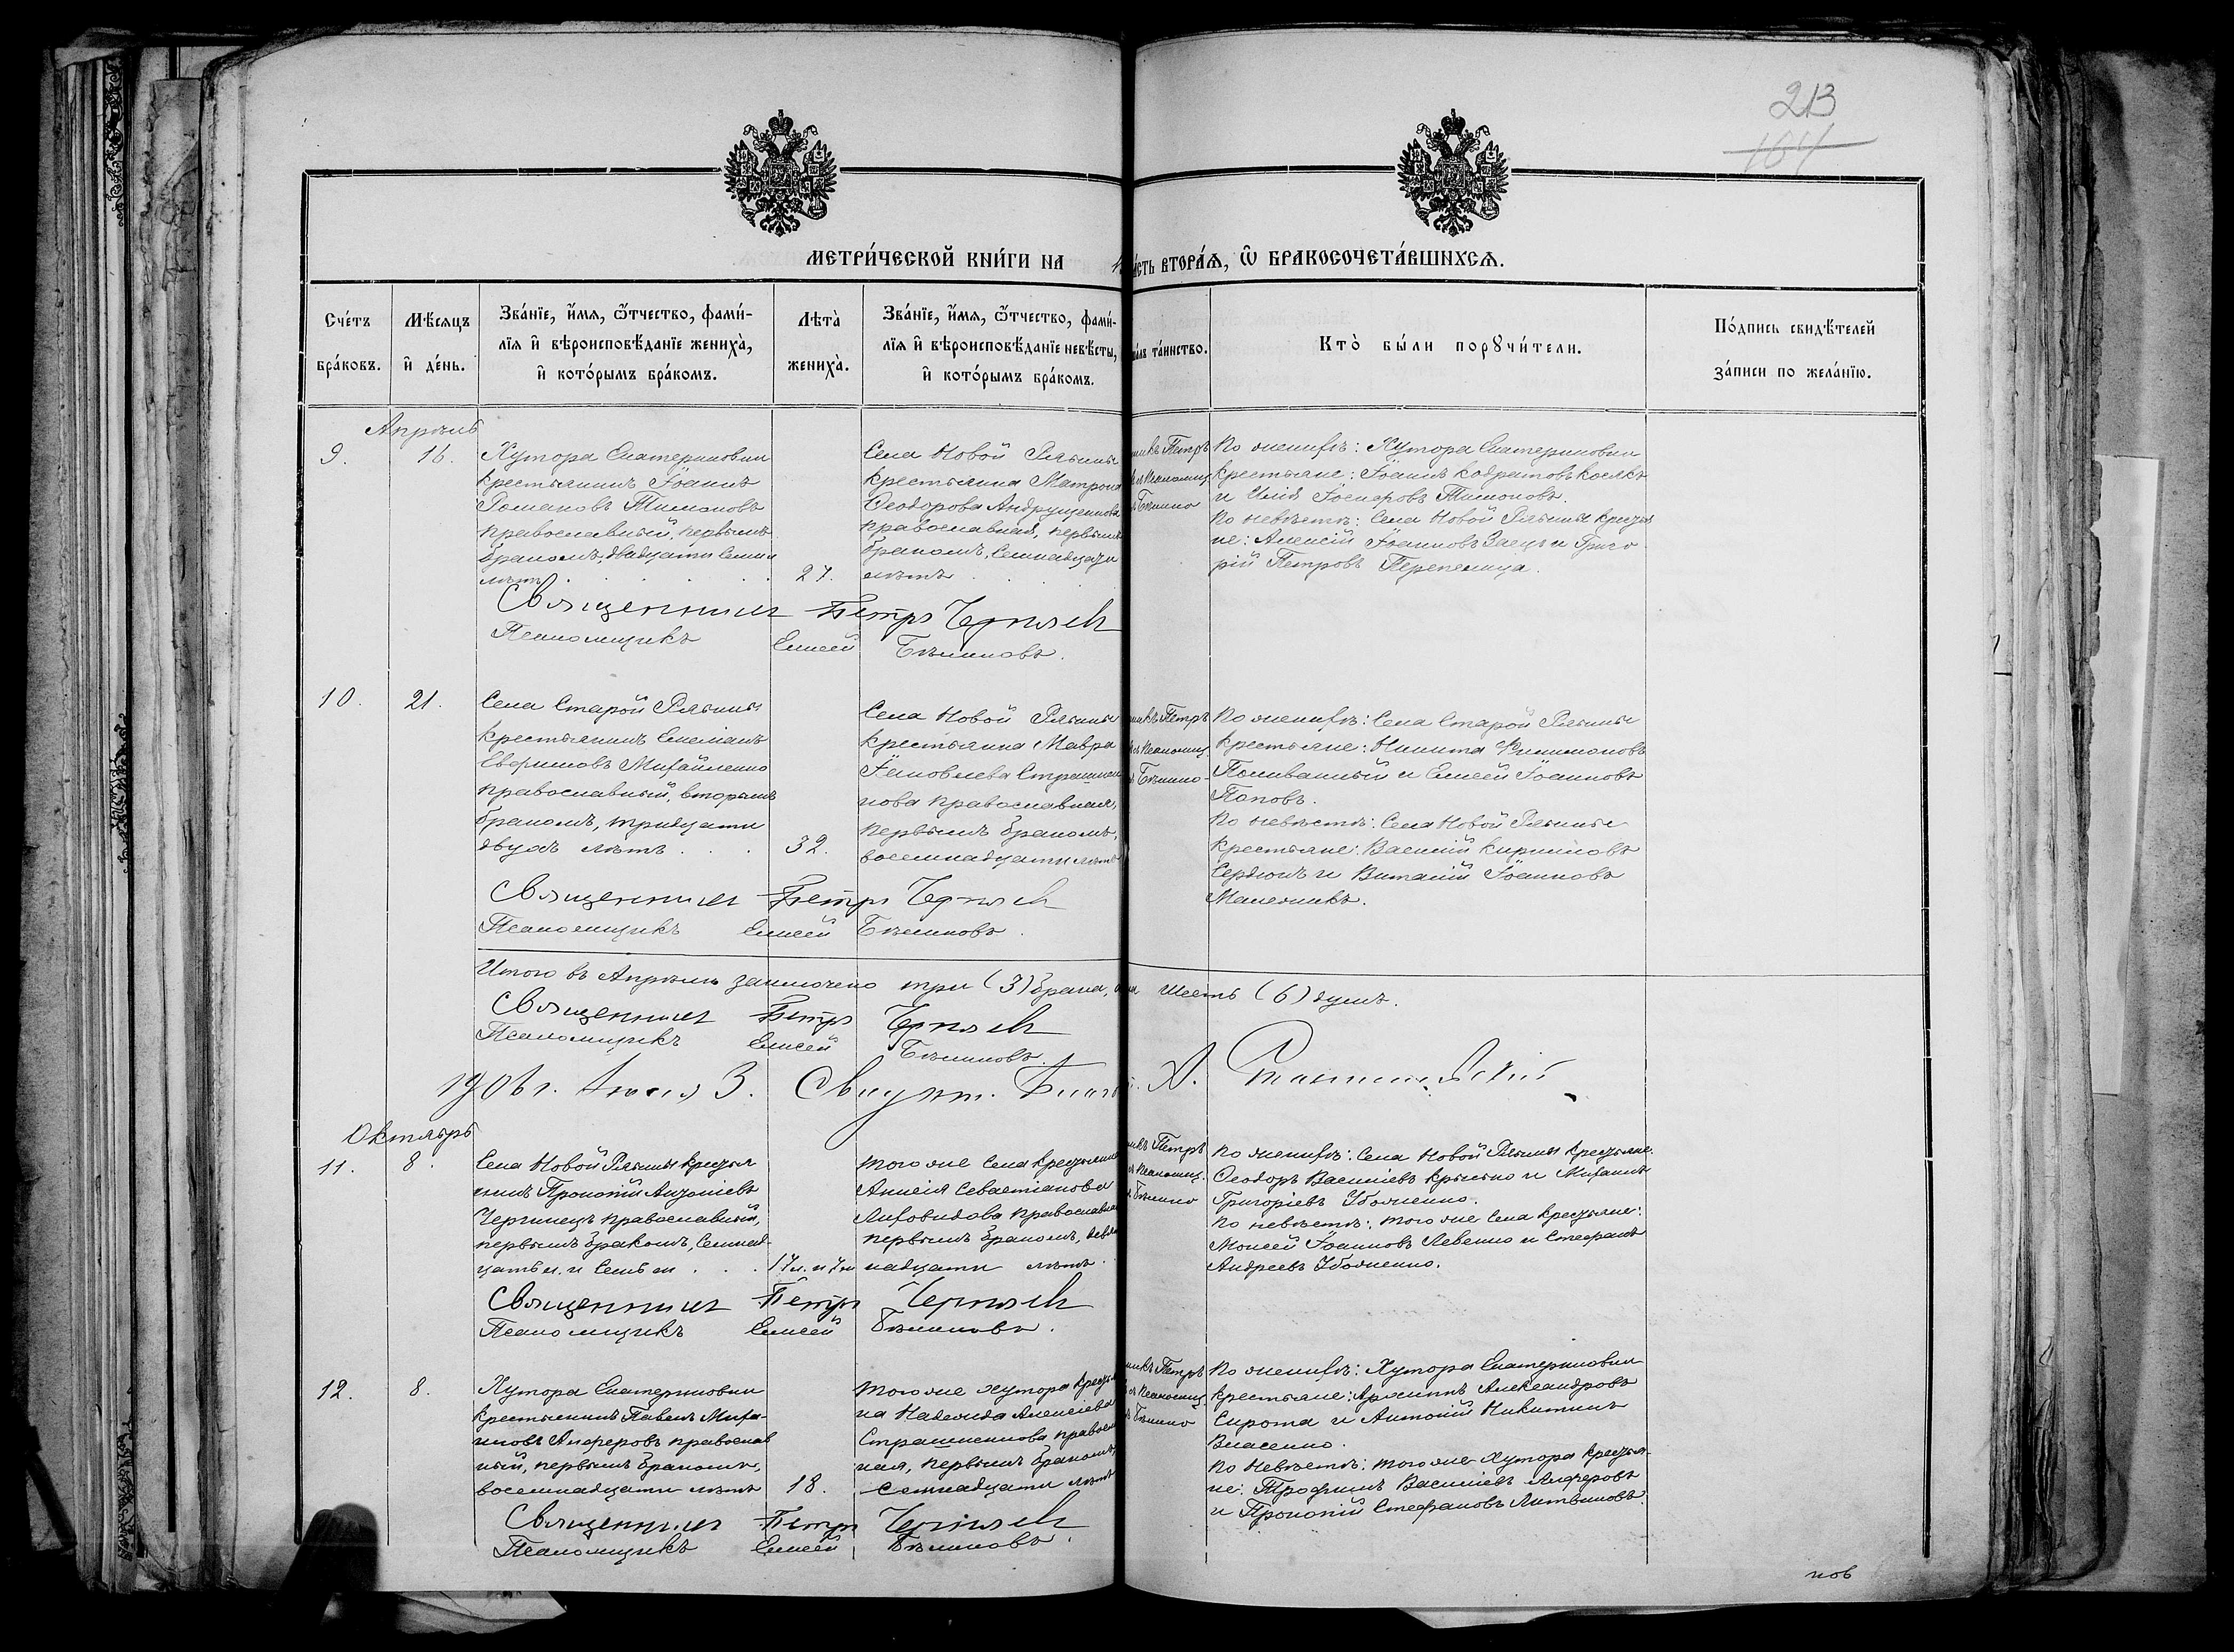 213
164
МЕТРИ́ЧЕСКОЙ КНИ́ГИ НА
ЧА́СТЬ ВТОРА́Ѧ, Ѡ҆ БРАКОСОЧЕТА́ВШИХСѦ.
Сче́тъ бра́ковъ.
Мѣ́сѧцъ и҆ де́нь.
Зва́нїе, и҆́мя, ѻ҆́тчество, фами́-
лїѧ и҆ вѣроисповѣ́данїе жениха̀,
и҆ кото́рымъ бра́комъ.
Лѣта̀ жениха̀.
Зва́нїе, и҆́мя, ѻ҆́тчество, фами́-
лїѧ и҆ вѣроисповѣ́данїе невѣ́сты,
и҆ кото́рымъ бра́комъ.
та́инство.
Кто̀ бы́ли порꙋчи́тели.
По́дпись свидѣ́телей
за́писи по жела́нїю.
Апрѣль
9.
16.
Хутора Екатериновки
крестьянинъ Іоаннъ
Романовъ Тимоновъ
православный, первымъ
бракомъ, двадцати семи
лѣтъ
27.
Села Новой Рябины
крестьянка Матрона
Ѳеодорова Андрущенкова
православная, первымъ
бракомъ, семнадцати
лѣтъ
никъ Петръ
Псаломщ.
Бѣлико
По женихѣ: Хутора Екатериновки
крестьяне: Іоаннъ Кодратовъ Косякъ
и Илія Іосифовъ Тимоновъ.
По невѣстѣ: Села Новой Рябины крестья
не: Алексій Іоанновъ Заецъ и Григо-
рій Петровъ Перепелица.
Священникъ Петръ Чернявск
Псаломщикъ Елисей Бѣликовъ.
10.
21.
Села Старой Рябины
крестьянинъ
Евфимовъ Михайленко
православный, вторымъ
бракомъ, тридцати
двухъ лѣтъ
32.
Села Новой Рябины
крестьянка Мавра
Іаковлева Страшнен
кова православная,
первымъ бракомъ,
восемнадцати лѣтъ
никъ Петръ
Псаломщ.
Бѣлико-
По женихѣ: Села Старой Рябины
крестьяне: Никита Филимоновъ
Поливанный и Елисей Іоанновъ
Поповъ.
По невѣстѣ: Села Новой Рябины
крестьяне: Василій Кирилловъ
Сердюкъ и Виталій Іоанновъ
Священникъ Петръ Чернявск
Псаломщикъ Елисей Бѣликовъ.
Итого въ Апрѣлѣ заключено три (3) брака, шесть (6) душъ.
Священникъ Петръ Чернявск
Псаломщикъ Елисей Бѣликовъ.
1906 г. 3.
Октябрь
11.
8.
Села Новой Рябины крестья
нинъ Прокопій Антоніевъ
Чернецъ православный,
первымъ бракомъ, семнад-
цать л. и семь м.
17 л. и 7 м
того же села крестьянка
Анисія Севастіанова
Лиховидова православная
первымъ бракомъ, девят
надцати лѣтъ.
никъ Петръ
Псаломщ.
Бѣлико
По женихѣ: Села Новой Рябины крестьяне:
Ѳеодоръ Василіевъ Крысько и Михаилъ
Григоріевъ Убоженко.
По невѣстѣ: того же села крестьяне:
Моисей Іоанновъ Левенко и Стефанъ
Андреевъ Убоженко.
Священникъ Петръ Чернявск
Псаломщикъ Елисей Бѣликовъ.
12.
8.
Хутора Екатериновки
крестьянинъ Павелъ Миха-
иловъ Алферовъ православ
ный, первымъ бракомъ,
восемнадцати лѣтъ
18.
того же хутора крестьян
ка Надежда Алексіева
Страшненкова православ
ная, первымъ бракомъ,
семнадцати лѣтъ
никъ Петръ
Псаломщ.
Бѣлико
По женихѣ: Хутора Екатериновки
крестьяне: Архиппъ Александровъ
Сирота и Антоній Никитинъ
Власенко.
По невѣстѣ: того же хутора крестья-
не: Трофимъ Василіевъ Алферовъ
и Прокопій Стефановъ Литвиновъ.
Священникъ Петръ Чернявск
Псаломщикъ Елисей Бѣликовъ.